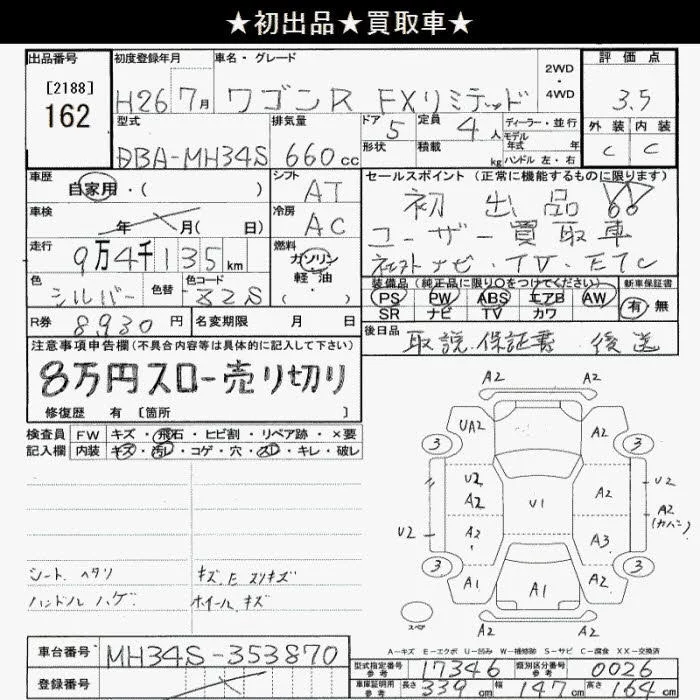 ★初出品★買取車★
出品番号 初度登録年月 車名・グレード 2WD・4WD 評価点
[2188]
162 H26 7月 ワゴンR FXリミテッド 3.5
型式 排気量 ドア 5 定員 4人 ディーラー・並行 外装 内装
DBA-MH34S 660cc 形状 積載 kg モデル年式 年 ハンドル 左・右 C C
車歴 自家用・( ) シフト AT セールスポイント(正常に機能するものに限ります)
車検 年 月( 日) 冷房 AC 初出品
走行 9万4千135km 燃料 ガソリン・軽油 ユーザー買取車
ナビ・TV・ETC
色 シルバー 色替 色コード Z2S 装備品(純正品に限り○をつけてください) 新車保証書
PS PW ABS エアB AW 有・無
SR ナビ TV カワ
R券 8930円 名変期限 月 日 後日品 取説.保証書.後送
注意事項申告欄(不具合内容等は具体的に記入して下さい)
8万円スロー売り切り
修復歴 有 [箇所 ]
検査員記入欄 FW キズ・飛石・ヒビ割・リペア跡・×要
内装 キズ・汚レ・コゲ・穴・スレ・キレ・破レ
A2 A2
UA2 A2
3 3
U2 A2 U1 A2 U2
A2 (カバン)
U2 A2 A3
3 3
A1 A1 A2
A2 A2
スペア
シート ヘタリ キズ.E スリキズ
ハンドル ハゲ ホイール キズ
A-キズ E-エクボ U-凹み W-補修跡 S-サビ C-腐食 XX-交換済
車台番号 MH34S-353870
登録番号
型式指定番号参考 17346 類別区分番号参考 0026
車庫証明用参考 長さ 339cm 幅 147cm 高さ 164cm